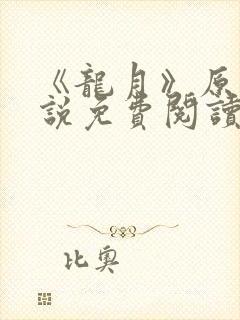 《龍月》原
說免費閱讀
比奧